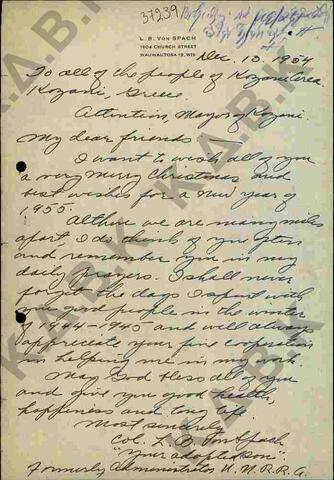 37239
L. B. VON SPACH
1604 CHURCH STREET
WAUWATOSA 13, WIS
Dec. 13. 1954
To all of the people of Kozani Area
Kozani, Greece
Attention, Mayor of Kozani
My dear friends
I want to wish all of you
a very merry Christmas and
best wishes for a new year of
1955.
Altho we are many miles
apart, I do think of you often
and remember you in my
daily prayers. I shall never
forget the days I spent with
you good people in the winter
of 1944-1945 and will always
appreciate your fine cooperation
in helping me in my work.
May God bless all of you
and give you good health,
happiness and long life.
Most sincerely
Col. L. B. Von Spach.
"your adopted son"
Formerly Administrator U.N.R.R.A.
K.A.B.K